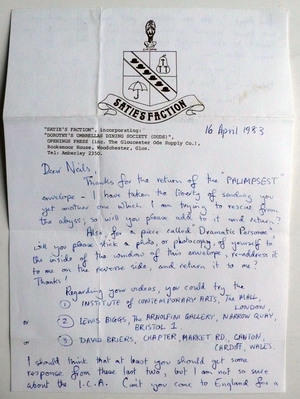 SATIE'S FACTION
"SATIE'S FACTION", incorporating:
"DOROTHY'S UMBRELLAS DINING SOCIETY (DUDS)",
OPENINGS PRESS (inc. The Gloucester Ode Supply Co.),
Rooksmoor House, Woodchester, Glos.
Tel: Amberley 2350.
16 April 1983
Dear Niels,
Thanks for the return of the "PALIMPSEST"
envelope - I have taken the liberty of sending you
yet another one which I am trying to rescue from
the abyss, so will you please add to it and return?
Also, for a piece called Dramatis Personae
will you please stick a photo, or photocopy, of yourself to
the inside of the window of this envelope, re-address it
to me on the reverse side, and return it to me?
Thanks!
Regarding your videos, you could try the
① INSTITUTE OF CONTEMPORARY ARTS, THE MALL,
LONDON,
or ② LEWIS BIGGS, THE ARNOLFINI GALLERY, NARROW QUAY,
BRISTOL 1
or ③ DAVID BRIERS, CHAPTER, MARKET RD, CANTON,
CARDIFF, WALES.
I should think that at least you should get some
response from these last two, but I am not so sure
about the I.C.A. Can't you come to England for a